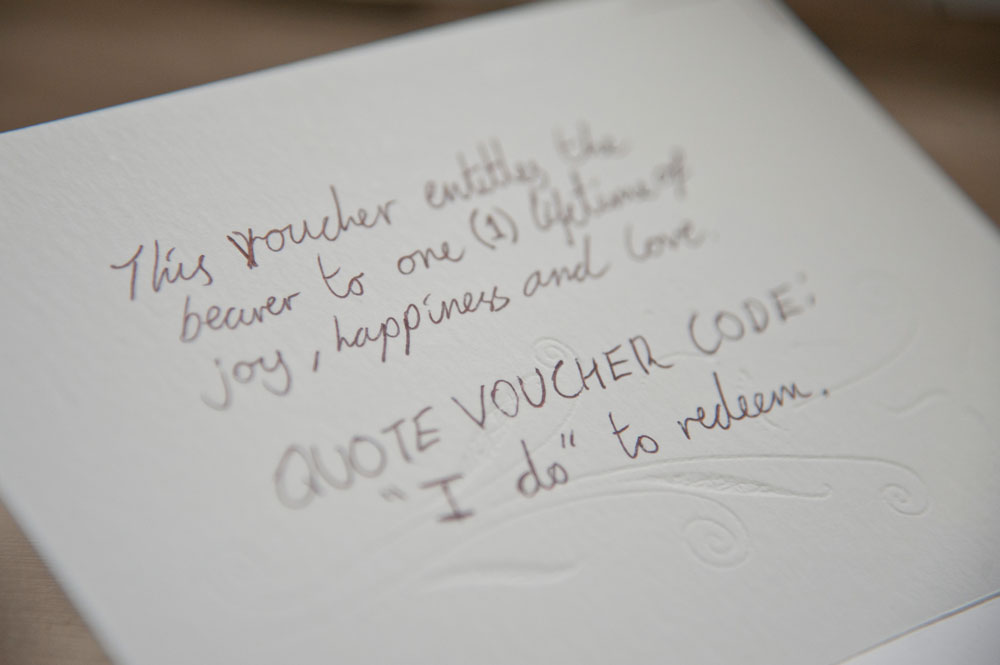 This voucher entitles the
bearer to one (1) lifetime of
joy, happiness and love.
QUOTE VOUCHER CODE:
"I do" to redeem.